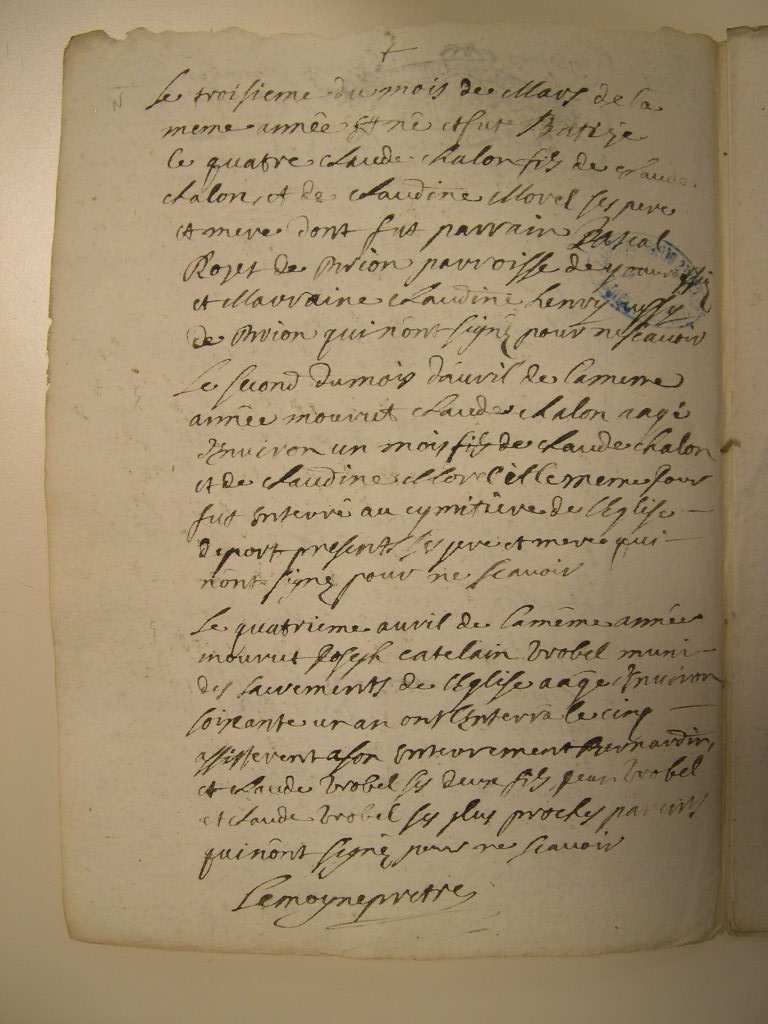 Le troisieme du mois de Mars de la
meme année Est né et fut Batize
le quatre Claude Chalon fils de Claude
Chalon, et de Claudine Morel ses pere
et mere dont fut parrain Pascal
Rozet de Brion parroisse de
et Marraine Claudine henry
de Brion qui n'ont signé pour ne scavoir
Le second du mois d'avril de la meme
année mourut Claude Chalon aagé
Environ un mois fils de Claude Chalon
et de Claudine Morel et le meme Jour
fut Enterré au cymitiere de l'Eglise
de port presents ses pere et mere qui
n'ont signé pour ne scavoir
Le quatrieme avril de la même année
mourut Joseph Catelain Vrobel muni
des sacrements de l'Eglise aagé Environ
soixante un an ont l'Enterra le cinq
assisterent a son Enterrement Bernardin,
et Claude Vrobel ses deux fils, Jean Vrobel
et Claude Vrobel ses plus proches parents
qui n'ont signé pour ne scavoir
Lemoyne pretre